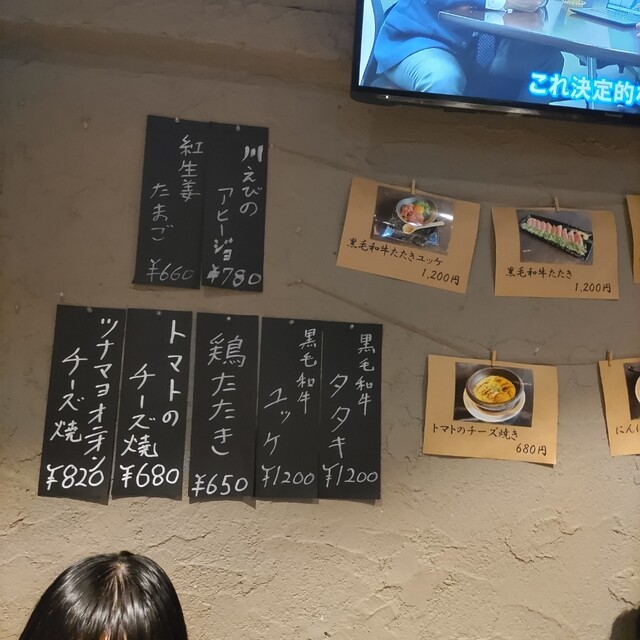 これ決定的な
川えびの
アヒージョ
¥780
紅生姜
たまご
¥660
黒毛和牛たたきユッケ
1,200円
黒毛和牛たたき
1,200円
黒毛和牛
タタキ
¥1200
黒毛和牛
ユッケ
¥1200
鶏たたき
¥650
トマトの
チーズ焼
¥680
ツナマヨオニオン
チーズ焼
¥820
トマトのチーズ焼き
680円
にんに